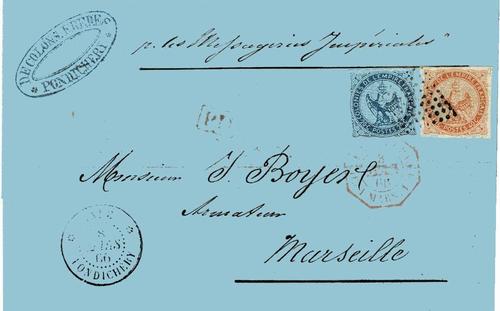 DECOLONS FRERES
PONDICHERY
p. les Messageries Impériales
COLONIES DE L'EMPIRE FRANÇAIS
POSTES
COLONIES DE L'EMPIRE FRANÇAIS
POSTES
PD
Monsieur J. Boyer
Armateur
Marseille
INDE
8
MARS
66
PONDICHERY